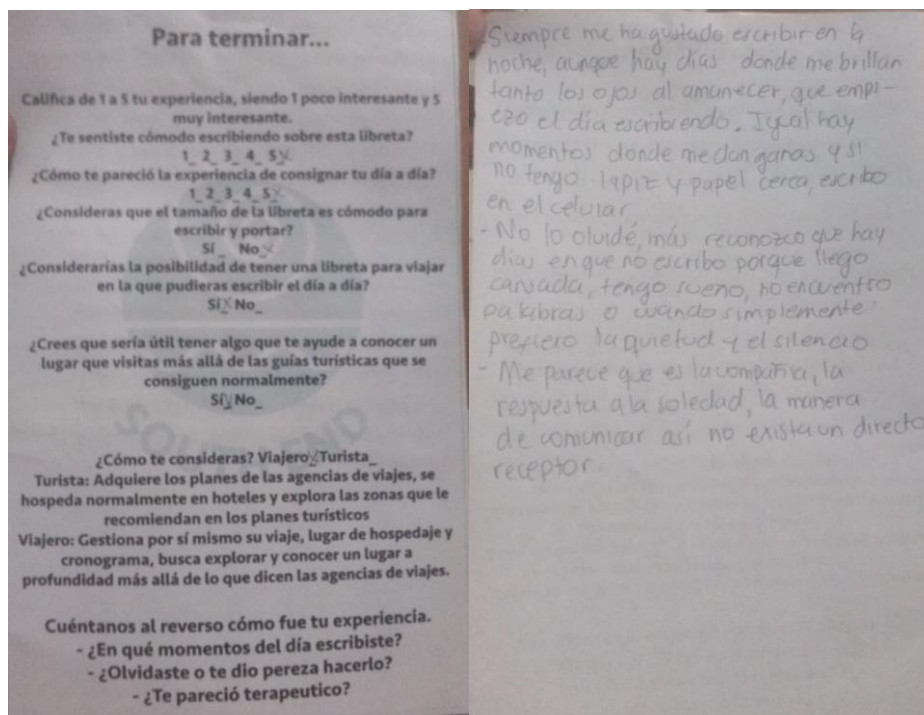 Para terminar...
Califica de 1 a 5 tu experiencia, siendo 1 poco interesante y 5
muy interesante.
¿Te sentiste cómodo escribiendo sobre esta libreta?
1_ 2_ 3_ 4_ 5X
¿Cómo te pareció la experiencia de consignar tu día a día?
1_ 2_ 3_ 4_ 5X
¿Consideras que el tamaño de la libreta es cómodo para
escribir y portar?
Sí_ No X
¿Considerarías la posibilidad de tener una libreta para viajar
en la que pudieras escribir el día a día?
Sí X No_
¿Crees que sería útil tener algo que te ayude a conocer un
lugar que visitas más allá de las guías turísticas que se
consiguen normalmente?
Sí X No_
¿Cómo te consideras? Viajero X Turista_
Turista: Adquiere los planes de las agencias de viajes, se
hospeda normalmente en hoteles y explora las zonas que le
recomiendan en los planes turísticos
Viajero: Gestiona por sí mismo su viaje, lugar de hospedaje y
cronograma, busca explorar y conocer un lugar a
profundidad más allá de lo que dicen las agencias de viajes.
Cuéntanos al reverso cómo fue tu experiencia.
- ¿En qué momentos del día escribiste?
- ¿Olvidaste o te dio pereza hacerlo?
- ¿Te pareció terapeutico?
Siempre me ha gustado escribir en la
noche, aunque hay días donde me brillan
tanto los ojos al amanecer, que empi-
ezo el día escribiendo. Igual hay
momentos donde me dan ganas y si
no tengo lapiz y papel cerca, escribo
en el celular
- No lo olvidé, más reconozco que hay
días en que no escribo porque llego
cansada, tengo sueño, no encuentro
palabras o cuando simplemente
prefiero la quietud y el silencio
- Me parece que es la compañia, la
respuesta a la soledad, la manera
de comunicar así no exista un directo
receptor.